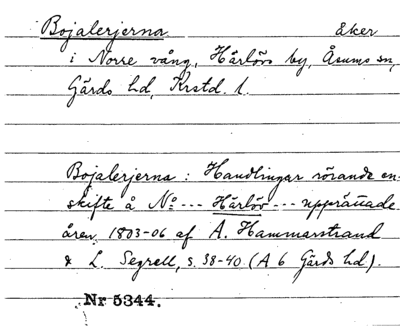 Bojalerjerna åker
i Norre vång, Härlövs by, Åsums sn,
Gärds hd, Krstd. l.
Bojalerjerna : Handlingar rörande en-
skifte å No --- Härlöv --- upprättade
åren 1803-06 af A. Hammarstrand
& L. Segrell, s. 38-40. (A 6 Gärds hd).
Nr 5344.